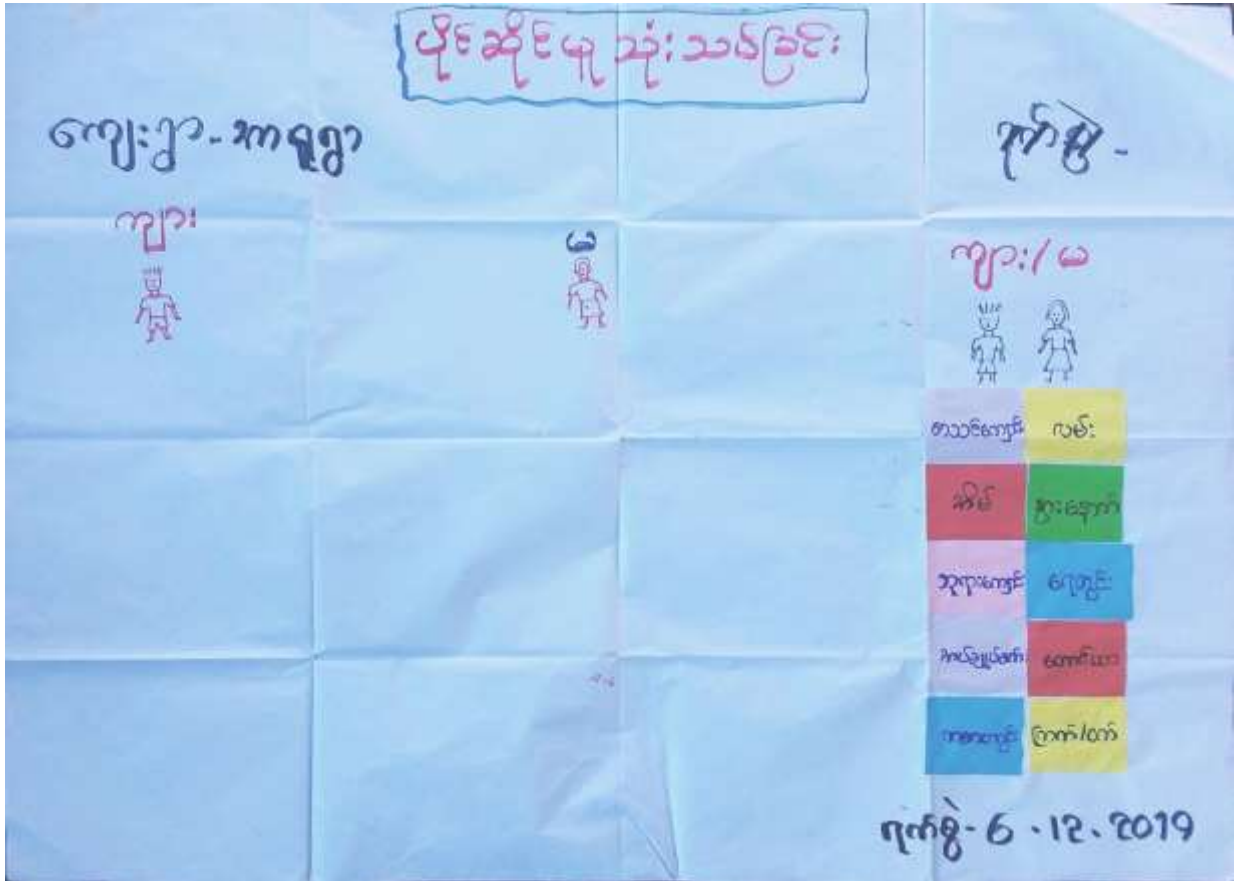 ပိုင်ဆိုင်မှု သုံးသပ်ခြင်း
ကျေးရွာ - ရွာ
ရက်စွဲ -
ကျား
မ
ကျား/မ
စာသင်ကျောင်း လမ်း
အိမ် နွားနောက်
ဘုရားကျောင်း ရေတွင်း
အပ်ချုပ်စက် တောင်ယာ
ကစားကွင်း ကြက်/ဝက်
ရက်စွဲ - 6 . 12 . 2019